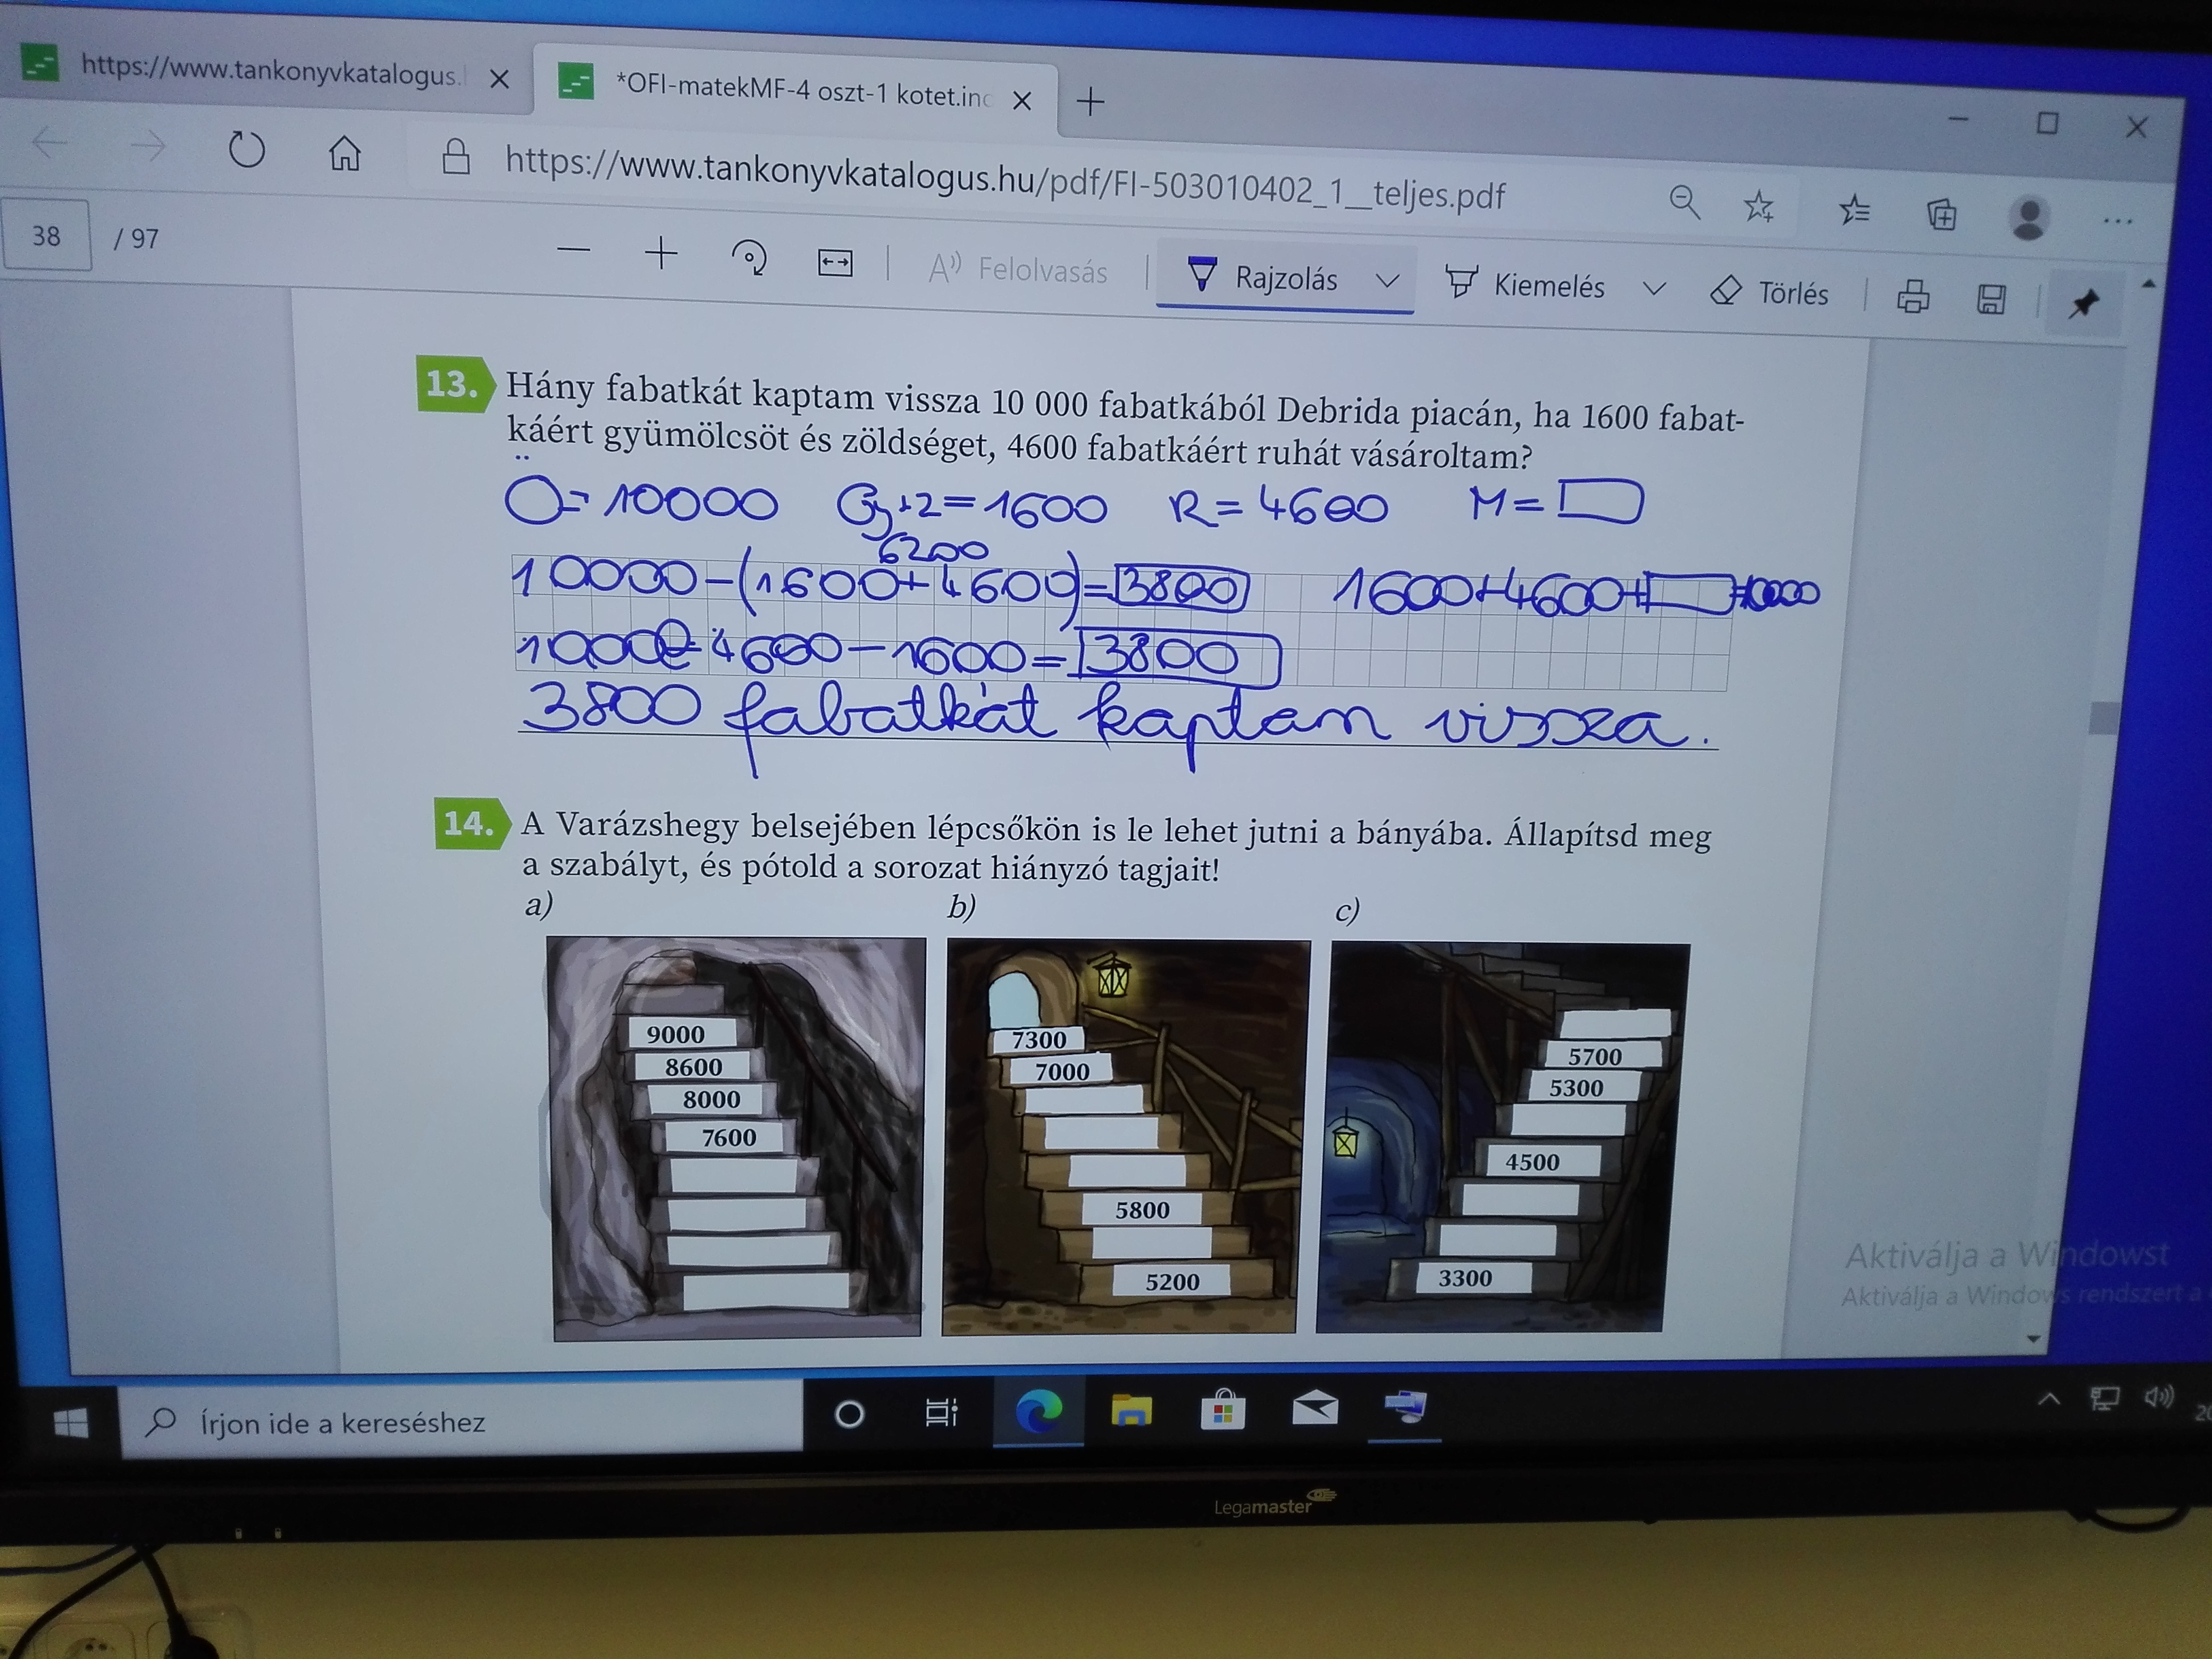 https://www.tankonyvkatalogus.
*OFI-matekMF-4 oszt-1 kotet.ind
https://www.tankonyvkatalogus.hu/pdf/FI-503010402_1__teljes.pdf
38 / 97
Felolvasás
Rajzolás
Kiemelés
Törlés
13. Hány fabatkát kaptam vissza 10 000 fabatkából Debrida piacán, ha 1600 fabat-
káért gyümölcsöt és zöldséget, 4600 fabatkáért ruhát vásároltam?
Ö=10000 Gy+z=1600 R=4600 M=
6200
10000-(1600+4600)=3800 1600+4600+ =10000
10000-4600-1600=3800
3800 fabatkát kaptam vissza.
14. A Varázshegy belsejében lépcsőkön is le lehet jutni a bányába. Állapítsd meg
a szabályt, és pótold a sorozat hiányzó tagjait!
a) b) c)
9000
8600
8000
7600
7300
7000
5800
5200
5700
5300
4500
3300
Aktiválja a Windowst
Aktiválja a Windows rendszert a
Írjon ide a kereséshez
Legamaster